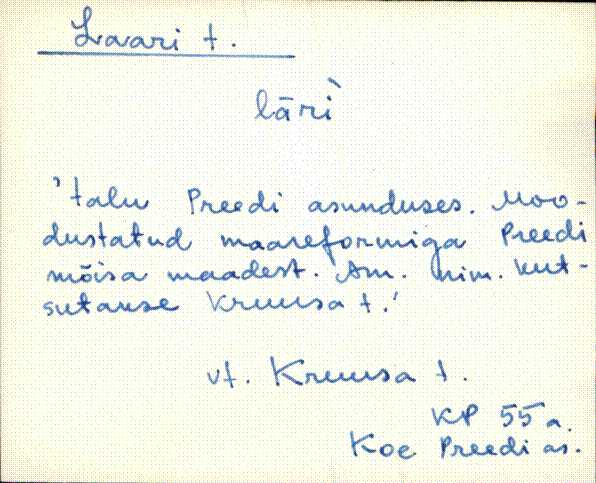 Laari t.
lāri`
'talu Preedi asunduses. Moo-
dustatud maareformiga Preedi
mõisa maadest. Am. nim. kut-
sutakse Kruusa t.'
vt. Kruusa t.
KP 55 a.
Koe Preedi as.